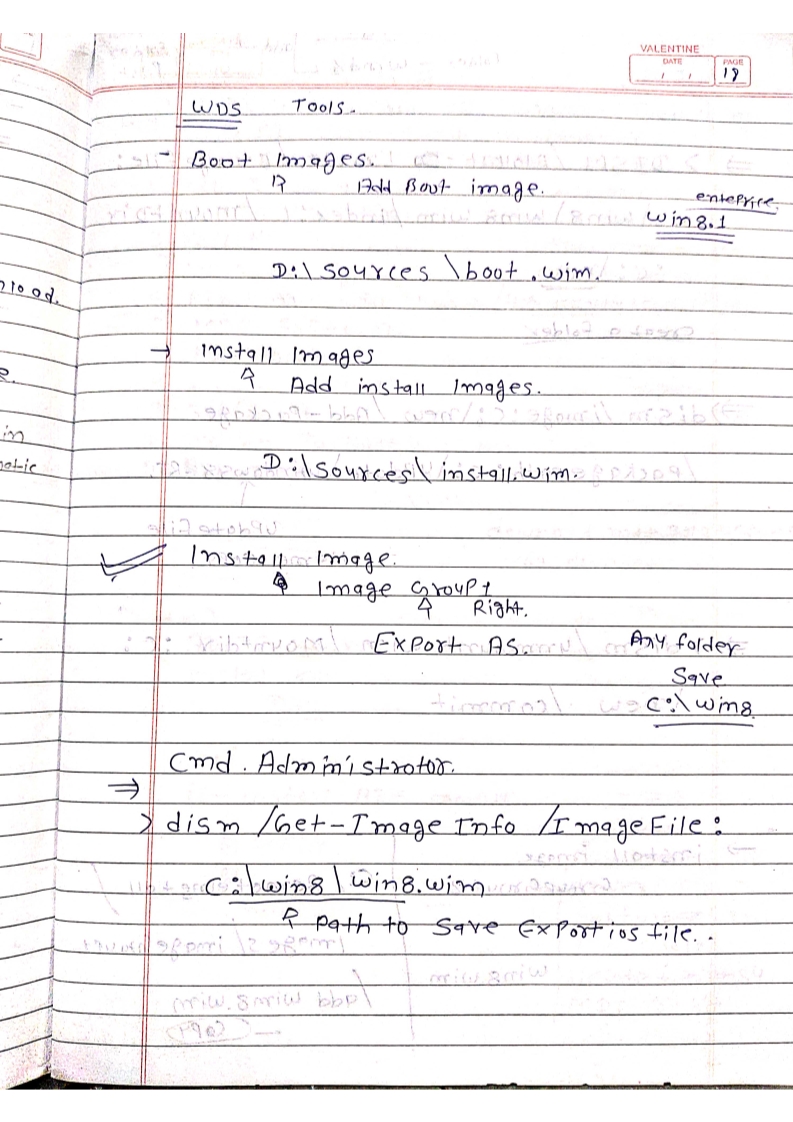 VALENTINE
DATE
PAGE
18
WDS Tools.
- Boot Images.
Add Boot image.
enteprice
win8.1
D:\Sources\boot.wim.
→ Install Images
Add install Images.
D:\Sources\install.wim.
Install Image.
Image Group1
Right.
Export As. Any folder
Save
C:\win8
Cmd. Administrator.
⇒
> dism /Get-Image Info /ImageFile:
C:\win8\win8.wim
path to Save Exportios file..